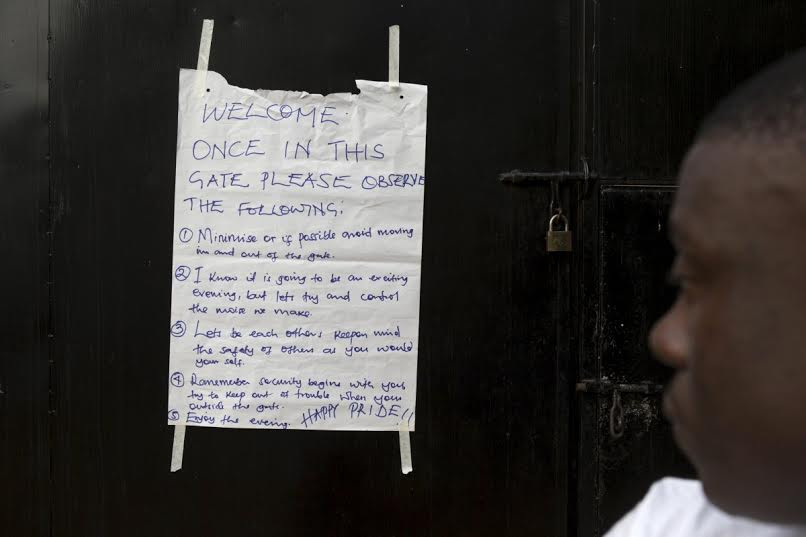 WELCOME.
ONCE IN THIS
GATE PLEASE OBSERVE
THE FOLLOWING:
① Minimise or if possible avoid moving
in and out of the gate.
② I know it is going to be an exciting
evening, but lets try and control
the noise we make.
③ Lets be each others keeper mind
the safety of others as you would
your self.
④ Ramember security begins with you
try to keep out of trouble when your
outside the gate.
⑤ Enjoy the evening. HAPPY PRIDE!!